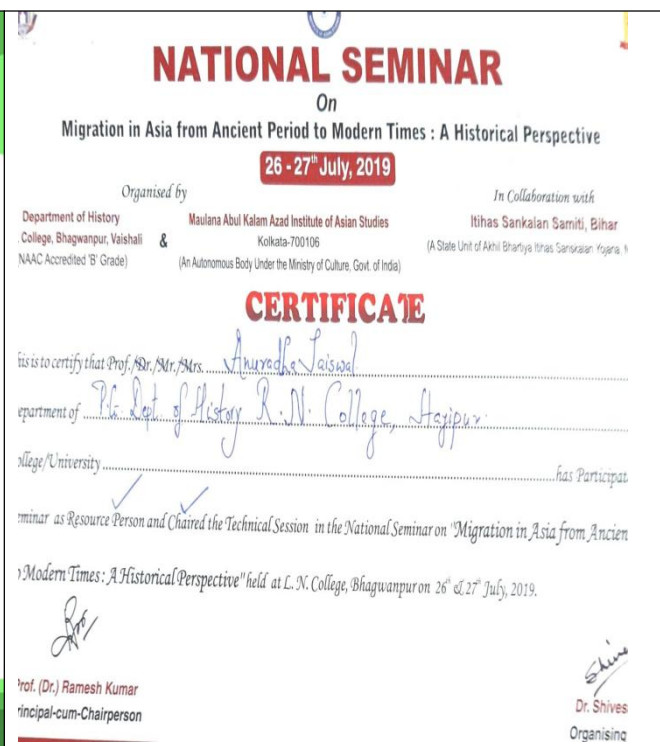 NATIONAL SEMINAR
On
Migration in Asia from Ancient Period to Modern Times : A Historical Perspective
26 - 27th July, 2019
Organised by
In Collaboration with
Department of History
. College, Bhagwanpur, Vaishali
NAAC Accredited 'B' Grade)
&
Maulana Abul Kalam Azad Institute of Asian Studies
Kolkata-700106
(An Autonomous Body Under the Ministry of Culture, Govt. of India)
Itihas Sankalan Samiti, Bihar
(A State Unit of Akhil Bhartiya Itihas Sanskalan Yojana,
CERTIFICATE
his is to certify that Prof./Dr./Mr./Mrs. Anuradha Jaiswal
epartment of P.G. Dept. of History R.N. College, Hajipur
ollege/University has Participat
eminar as Resource Person and Chaired the Technical Session in the National Seminar on "Migration in Asia from Ancien
o Modern Times : A Historical Perspective" held at L. N. College, Bhagwanpur on 26th & 27th July, 2019.
Prof. (Dr.) Ramesh Kumar
rincipal-cum-Chairperson
Dr. Shives
Organising